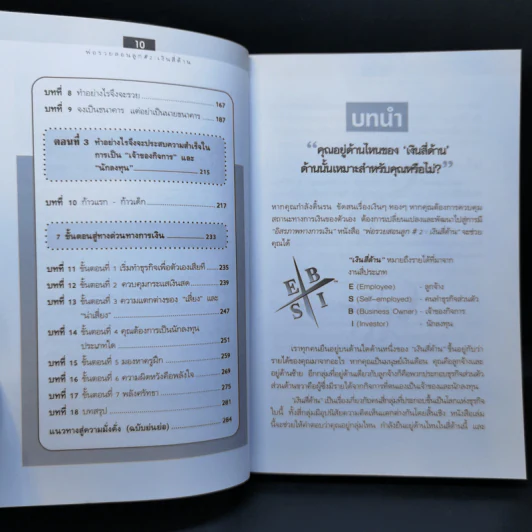 10
พ่อรวยสอนลูก #2 : เงินสี่ด้าน
บทที่ 8 ทำอย่างไรจึงจะรวย 147
บทที่ 9 จงเป็นธนาคาร แต่อย่าเป็นนายธนาคาร 187
ตอนที่ 3 ทำอย่างไรจึงจะประสบความสำเร็จใน
การเป็น "เจ้าของกิจการ" และ
"นักลงทุน" 215
บทที่ 10 ก้าวแรก - ก้าวเด็ก 217
7 ขั้นตอนสู่ทางด่วนทางการเงิน 233
บทที่ 11 ขั้นตอนที่ 1 เริ่มทำธุรกิจเพื่อตัวเองเสียที 235
บทที่ 12 ขั้นตอนที่ 2 ควบคุมกระแสเงินสด 239
บทที่ 13 ขั้นตอนที่ 3 ความแตกต่างของ "เสี่ยง" และ
"น่าเสี่ยง" 247
บทที่ 14 ขั้นตอนที่ 4 คุณต้องการเป็นนักลงทุน
ประเภทใด 251
บทที่ 15 ขั้นตอนที่ 5 มองหาครูฝึก 259
บทที่ 16 ขั้นตอนที่ 6 ความผิดหวังคือพลังใจ 269
บทที่ 17 ขั้นตอนที่ 7 พลังศรัทธา 275
บทที่ 18 บทสรุป 281
แนวทางสู่ความมั่งคั่ง (ฉบับย่นย่อ) 284
บทนำ
"คุณอยู่ด้านไหนของ 'เงินสี่ด้าน'
ด้านนั้นเหมาะสำหรับคุณหรือไม่?"
หากคุณกำลังดิ้นรน ขัดสนเรื่องเงินๆ ทองๆ หากคุณต้องการควบคุม
สถานะทางการเงินของตัวเอง ต้องการเปลี่ยนแปลงและพัฒนาไปสู่การมี
"อิสรภาพทางการเงิน" หนังสือ "พ่อรวยสอนลูก # 2 : เงินสี่ด้าน" จะช่วย
คุณได้
"เงินสี่ด้าน" หมายถึงรายได้ที่มาจาก
งานสี่ประเภท
E B
S I
E (Employee) - ลูกจ้าง
S (Self-employed) - คนทำธุรกิจส่วนตัว
B (Business Owner) - เจ้าของกิจการ
I (Investor) - นักลงทุน
เราทุกคนยืนอยู่บนด้านใดด้านหนึ่งของ "เงินสี่ด้าน" ขึ้นอยู่กับว่า
รายได้ของคุณมาจากอะไร หากคุณเป็นมนุษย์เงินเดือน คุณคือลูกจ้างและ
อยู่ด้านซ้าย อีกกลุ่มที่อยู่ด้านเดียวกับลูกจ้างก็คือพวกประกอบธุรกิจส่วนตัว
ส่วนด้านขวาคือผู้ซึ่งมีรายได้จากกิจการที่ตนเองเป็นเจ้าของและนักลงทุน
"เงินสี่ด้าน" เป็นเรื่องเกี่ยวกับคนสี่กลุ่มที่ประกอบขึ้นเป็นโลกแห่งธุรกิจ
ใบนี้ ทั้งสี่กลุ่มมีอุปนิสัยความคิดเห็นแตกต่างกันโดยสิ้นเชิง หนังสือเล่ม
นี้จะช่วยให้คำตอบว่าคุณอยู่กลุ่มไหน กำลังยืนอยู่ด้านไหนในสี่ด้านนี้ และ